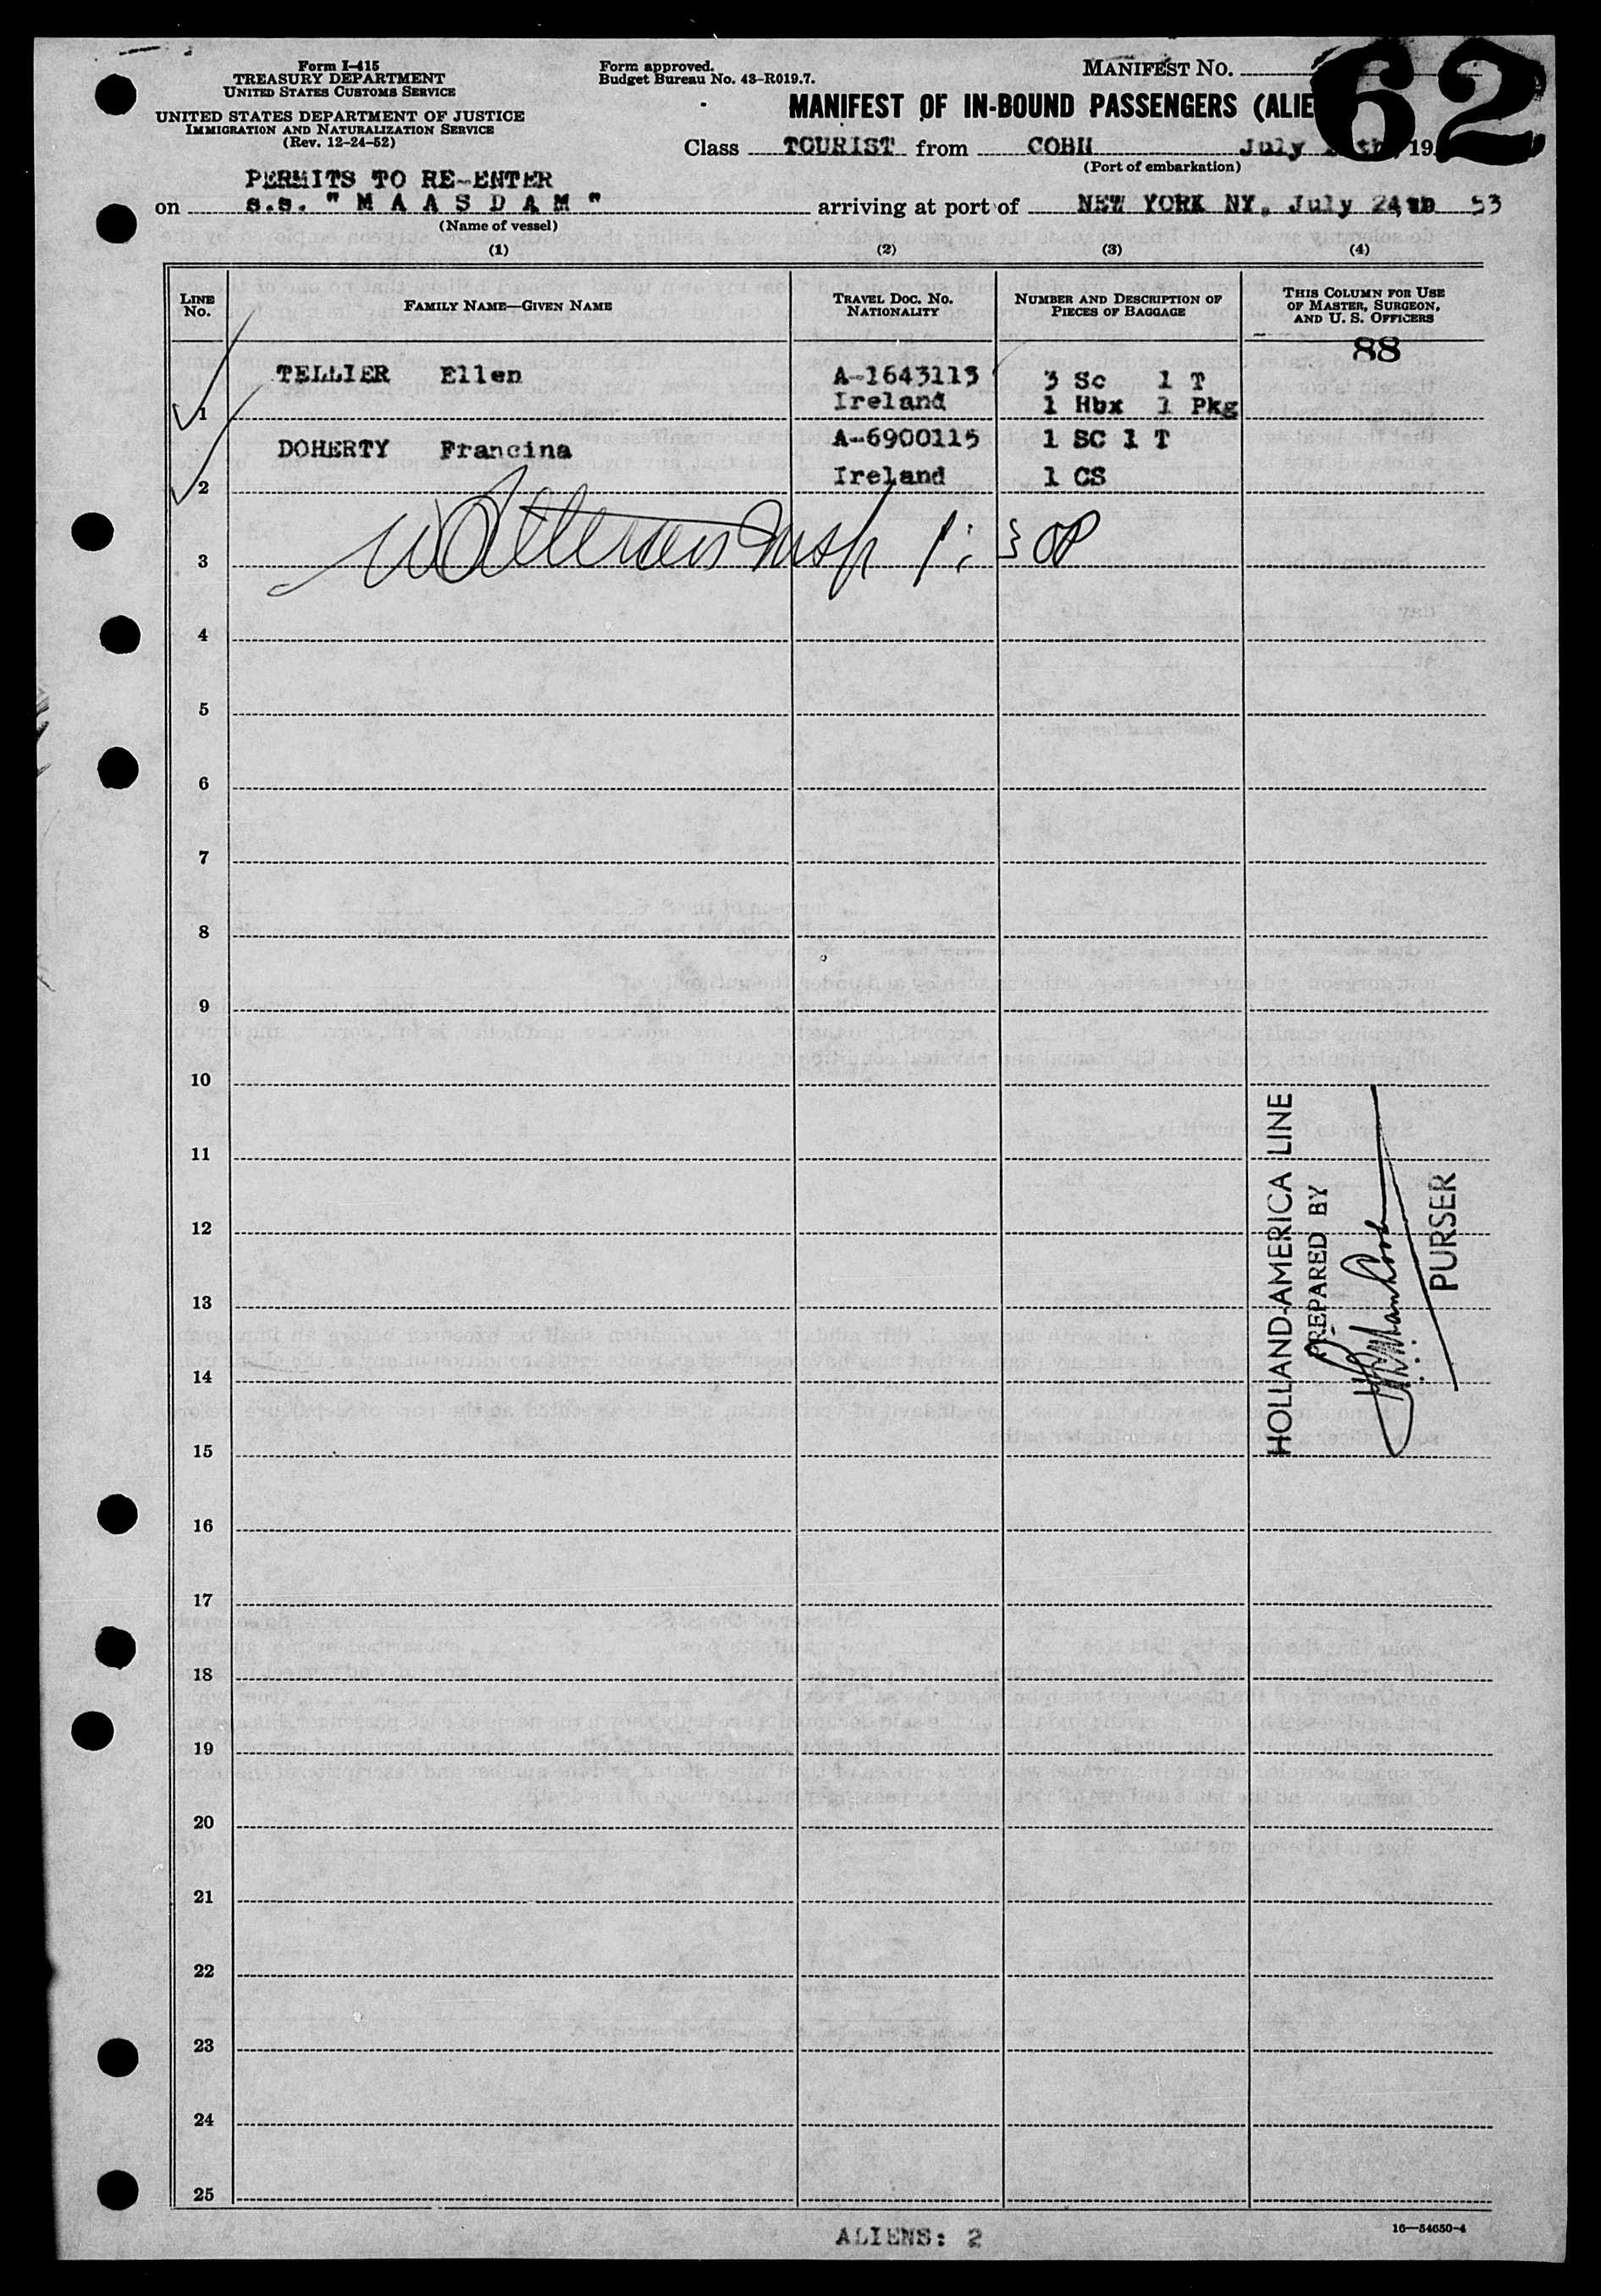 Form I-415
TREASURY DEPARTMENT
UNITED STATES CUSTOMS SERVICE
UNITED STATES DEPARTMENT OF JUSTICE
IMMIGRATION AND NATURALIZATION SERVICE
(Rev. 12-24-52)
Form approved.
Budget Bureau No. 43-R019.7.
MANIFEST NO.
62
MANIFEST OF IN-BOUND PASSENGERS (ALIE
Class TOURIST from COBH July th, 19
(Port of embarkation)
PERMITS TO RE-ENTER
on s.s. "MAASDAM" arriving at port of NEW YORK NY, July 24 53
(Name of vessel)
(1) (2) (3) (4)
LINE No. FAMILY NAME—GIVEN NAME TRAVEL DOC. NO. NATIONALITY NUMBER AND DESCRIPTION OF PIECES OF BAGGAGE THIS COLUMN FOR USE OF MASTER, SURGEON, AND U. S. OFFICERS
88
TELLIER Ellen A-1643113 3 Sc 1 T
1 Ireland 1 Hbx 1 Pkg
DOHERTY Francina A-6900115 1 SC 1 T
2 Ireland 1 CS
3
4
5
6
7
8
9
10
11
12
13
14
15
16
17
18
19
20
21
22
23
24
25
HOLLAND-AMERICA LINE
PREPARED BY
PURSER
ALIENS: 2
16—54650-4